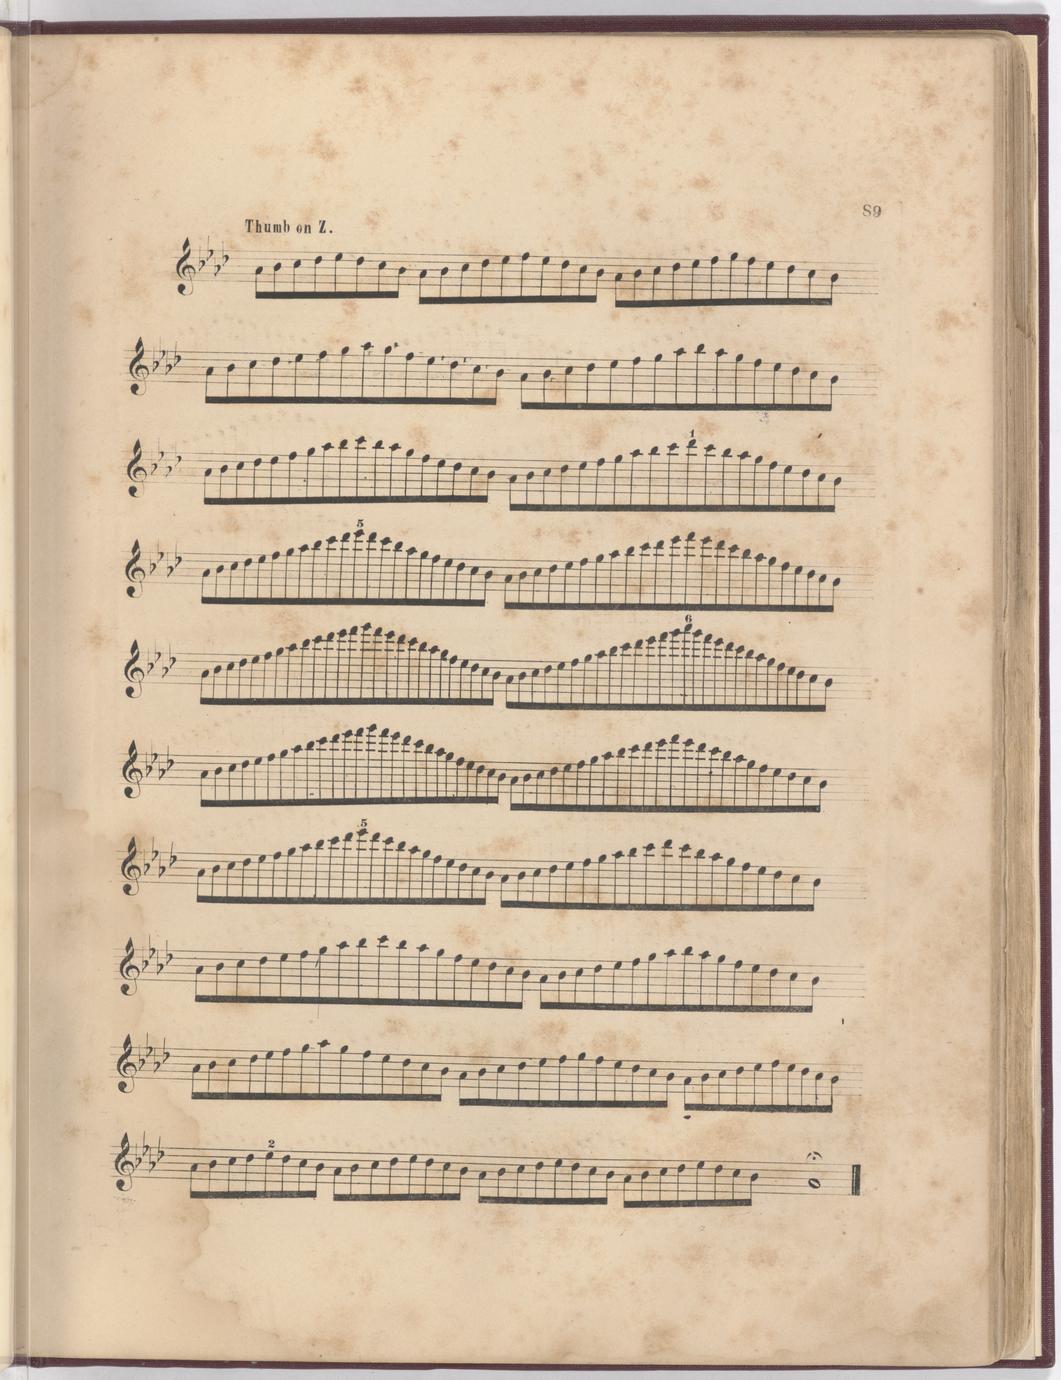 89
Thumb on Z.
1
5
6
5
2